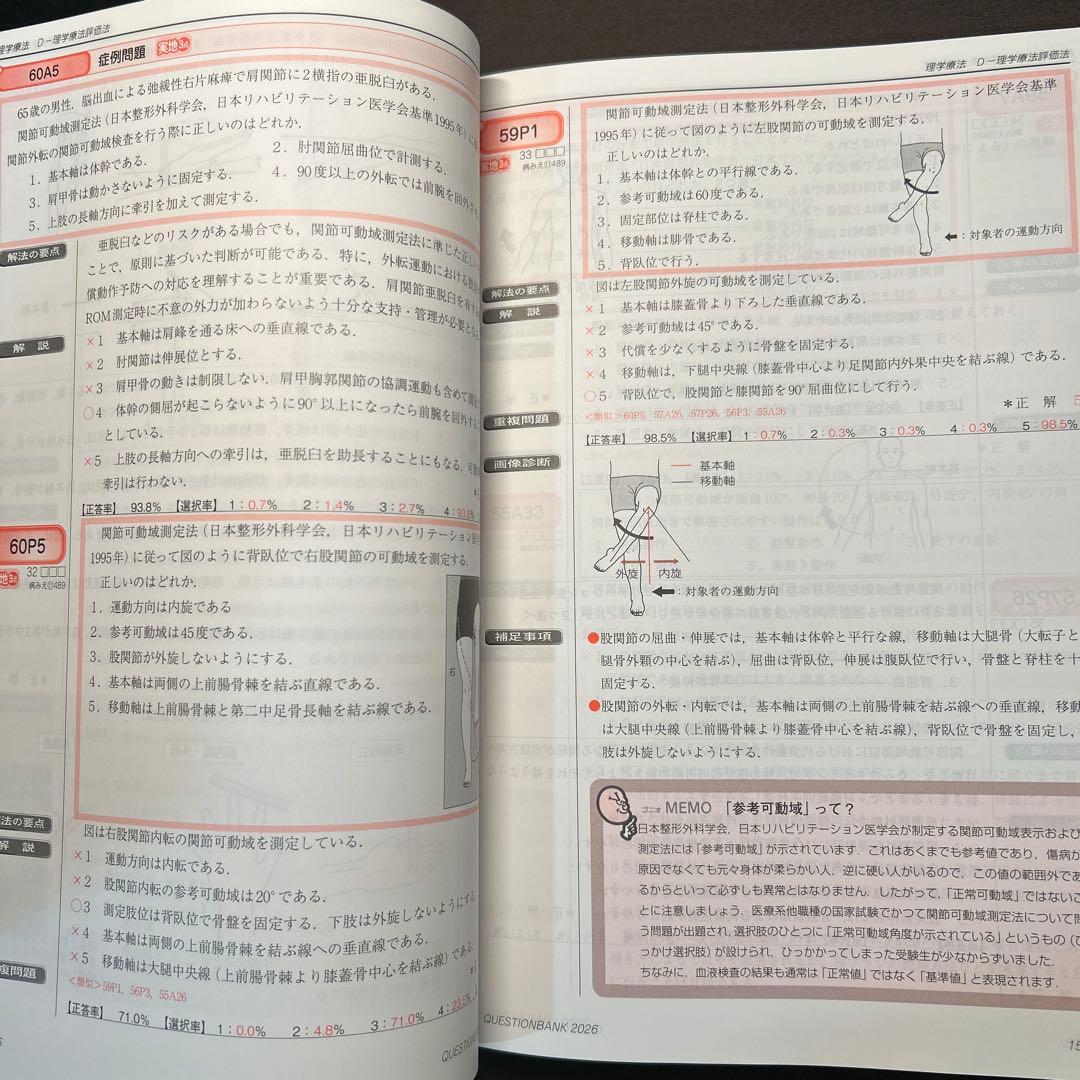 理学療法 D－理学療法評価法
60A5 症例問題 実地3点
65歳の男性．脳出血による弛緩性右片麻痺で肩関節に2横指の亜脱臼がある．
関節可動域測定法（日本整形外科学会，日本リハビリテーション医学会基準1995年）に
関節外転の関節可動域検査を行う際に正しいのはどれか．
1．基本軸は体幹である． 2．肘関節屈曲位で計測する．
3．肩甲骨は動かさないように固定する． 4．90度以上の外転では前腕を回外させ
5．上肢の長軸方向に牽引を加えて測定する．
解法の要点
亜脱臼などのリスクがある場合でも，関節可動域測定法に準じた正しい
ことで，原則に基づいた判断が可能である．特に，外転運動における
償動作予防への対応を理解することが重要である．肩関節亜脱臼を有する
ROM測定時に不意の外力が加わらないよう十分な支持・管理が必要と
解説
×1 基本軸は肩峰を通る床への垂直線である．
×2 肘関節は伸展位とする．
×3 肩甲骨の動きは制限しない．肩甲胸郭関節の協調運動も含めて
○4 体幹の側屈が起こらないように90°以上になったら前腕を回外する
としている．
×5 上肢の長軸方向への牽引は，亜脱臼を助長することにもなる．
牽引は行わない．
[正答率] 93.8% 【選択率】 1：0.7% 2：1.4% 3：2.7% 4：93.8
60P5
実地3点
32 □□□
病みえ⑪489
関節可動域測定法（日本整形外科学会，日本リハビリテーション
1995年）に従って図のように背臥位で右股関節の可動域を測定する．
正しいのはどれか．
1．運動方向は内旋である
2．参考可動域は45度である．
3．股関節が外旋しないようにする．
4．基本軸は両側の上前腸骨棘を結ぶ直線である．
5．移動軸は上前腸骨棘と第二中足骨長軸を結ぶ線である．
右
法の要点
図は右股関節内転の関節可動域を測定している．
解説
×1 運動方向は内転である．
×2 股関節内転の参考可動域は20°である．
○3 測定肢位は背臥位で骨盤を固定する．下肢は外旋しないようにする．
×4 基本軸は両側の上前腸骨棘を結ぶ線への垂直線である．
×5 移動軸は大腿中央線（上前腸骨棘より膝蓋骨中心を結ぶ線）である．
複問題
<類似>59P1，56P3，55A26
[正答率] 71.0% 【選択率】 1：0.0% 2：4.8% 3：71.0% 4：23.5%
理学療法 D－理学療法評価法
59P1
実地3点
33 □□□
病みえ⑪489
関節可動域測定法（日本整形外科学会，日本リハビリテーション医学会基準
1995年）に従って図のように左股関節の可動域を測定する．
正しいのはどれか．
1．基本軸は体幹との平行線である．
2．参考可動域は60度である．
3．固定部位は脊柱である．
4．移動軸は腓骨である．
5．背臥位で行う．
：対象者の運動方向
解法の要点
図は左股関節外旋の可動域を測定している．
解説
×1 基本軸は膝蓋骨より下ろした垂直線である．
×2 参考可動域は45°である．
×3 代償を少なくするように骨盤を固定する．
×4 移動軸は，下腿中央線（膝蓋骨中心より足関節内外果中央を結ぶ線）である．
○5 背臥位で，股関節と膝関節を90°屈曲位にして行う．
重複問題
<類似>60P5，57A26，57P26，56P3，55A26
＊正解 5
[正答率] 98.5% 【選択率】 1：0.7% 2：0.3% 3：0.3% 4：0.3% 5：98.5%
画像診断
基本軸
移動軸
外旋 内旋
：対象者の運動方向
補足事項
●股関節の屈曲・伸展では，基本軸は体幹と平行な線，移動軸は大腿骨（大転子と
腿骨外顆の中心を結ぶ），屈曲は背臥位，伸展は腹臥位で行い，骨盤と脊柱を十
固定する．
●股関節の外転・内転では，基本軸は両側の上前腸骨棘を結ぶ線への垂直線，移動
は大腿中央線（上前腸骨棘より膝蓋骨中心を結ぶ線），背臥位で骨盤を固定し，
肢は外旋しないようにする．
ゴニオ MEMO 「参考可動域」って？
日本整形外科学会，日本リハビリテーション医学会が制定する関節可動域表示および
測定法には「参考可動域」が示されています．これはあくまでも参考値であり，傷病が
原因でなくても元々身体が柔らかい人，逆に硬い人がいるので，この値の範囲外であ
るからといって必ずしも異常とはなりません．したがって，「正常可動域」ではないこ
とに注意しましょう．医療系他職種の国家試験でかつて関節可動域測定法について問
う問題が出題され，選択肢のひとつに「正常可動域角度が示されている」というもの（ひ
っかけ選択肢）が設けられ，ひっかかってしまった受験生が少なからずいました．
ちなみに，血液検査の結果も通常は「正常値」ではなく「基準値」と表現されます．
QUESTIONBANK 2026
QUESTION
15